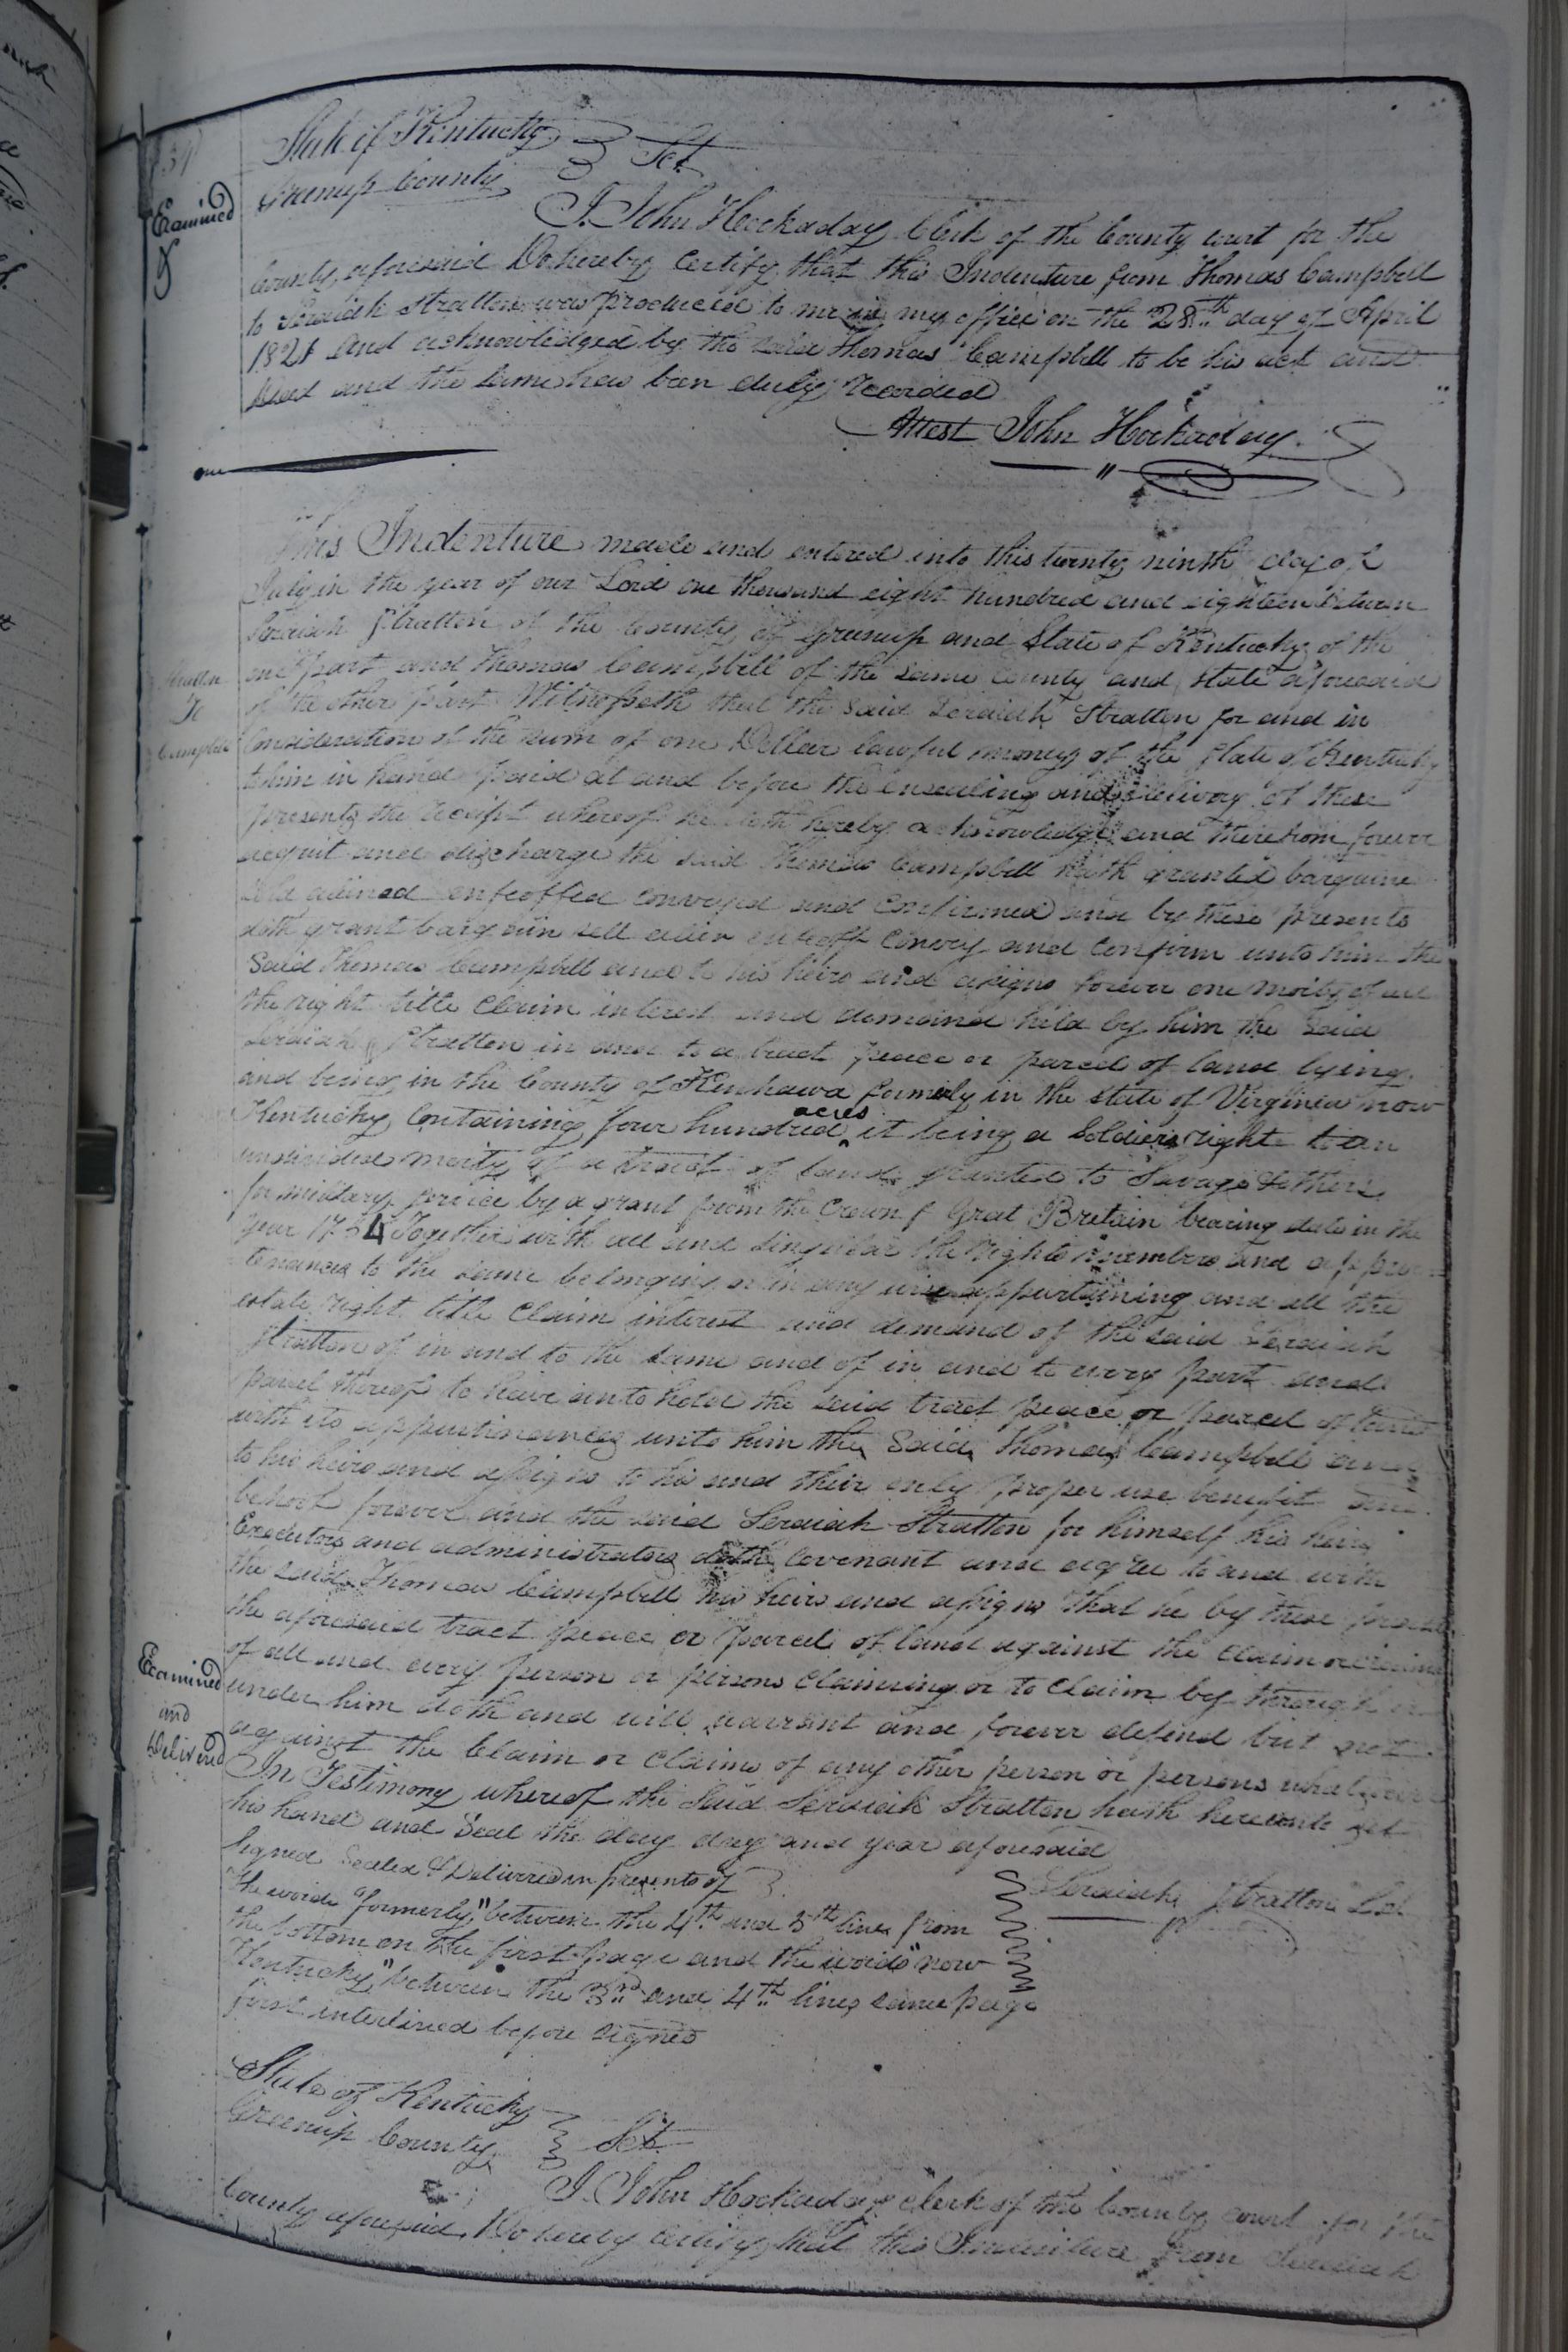 State of Kentucky } Sct
Greenup County
Examined
I John Hockaday Clerk of the County court for the
County aforesaid Do hereby Certify that this Indenture from Thomas Campbell
to Seraiah Stratton was produced to me in my office on the 28th day of April
1821 And acknowledged by the said Thomas Campbell to be his act and
Deed and the same has been duly recorded
Attest John Hockaday
This Indenture made and entered into this twenty ninth day of
July in the year of our Lord one thousand eight hundred and eighteen Between
Seraiah Stratton of the County of Greenup and State of Kentucky of the
one part and Thomas Campbell of the same County and State aforesaid
Stratton
To
Campbell
of the other part Witnesseth that the said Seraiah Stratton for and in
Consideration of the sum of one Dollar lawful money of the State of Kentucky
to him in hand paid at and before the ensealing and delivery of these
presents the receipt whereof he doth hereby acknowledge and therefrom forever
acquit and discharge the said Thomas Campbell hath granted bargained
sold aliened enfeoffed conveyed and Confirmed and by these presents
doth grant bargain sell alien enfeoff Convey and Confirm unto him the
Said Thomas Campbell and to his heirs and assigns forever one moity of all
the right title Claim interest and demand held by him the said
Seraiah Stratton in and to a tract peace or parcel of land lying
and being in the County of Kenhawa formerly in the state of Virginia now
Kentucky Containing four hundred acres it being a Soldiers right to an
undivided moity of a tract of land granted to Savage & others
for military service by a grant from the Crown of Great Britain bearing date in the
year 1754 Together with all and singular the rights members and appur
tenances to the same belonging or in any wise appurtaining and all the
estate right title Claim interest and demand of the said Seraiah
Stratton of in and to the same and of in and to every part and
parcel thereof to have and to hold the said tract peace or parcel of land
with its appurtinances unto him the Said Thomas Campbell and
to his heirs and assigns to his and their only proper use benefit and
behoof forever and the said Seraiah Stratton for himself his heirs
Executors and administrators doth Covenant and agree to and with
the said Thomas Campbell his heirs and assigns that he by these presents
the aforesaid tract peace or parcel of land against the claim or claims
of all and every person or persons Claiming or to Claim by through or
Examined
and
Delivered
under him doth and will warrant and forever defend but not
against the Claim or Claims of any other person or persons whatsoever
In Testimony whereof the Said Seraiah Stratton hath hereunto set
his hand and Seal the day day and year aforesaid
Signed Sealed & Delivered in presents of } Seraiah Stratton
The words "formerly" between the 4th and 5th lines from
the bottom on the first page and the words "now
Kentucky" between the 3rd and 4th lines same page
first interlined before signed
State of Kentucky } Sct
Greenup County
I John Hockaday clerk of the County court for the
County aforesaid, Do hereby Certify that this Indenture from Seraiah